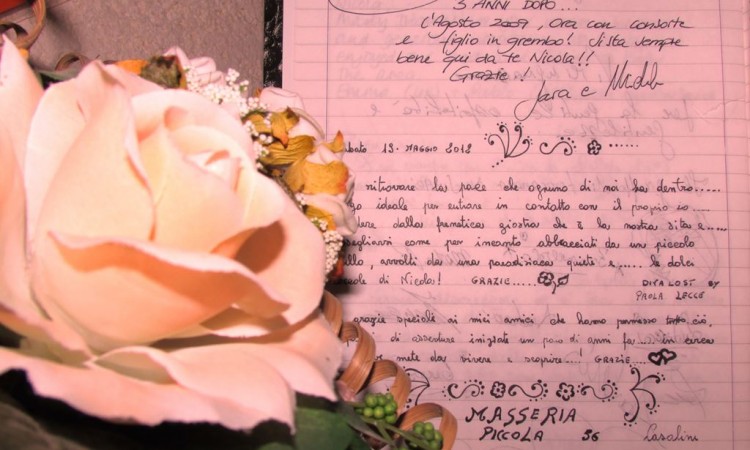 3 ANNI DOPO...
L'Agosto 2009, ora con consorte
e figlio in grembo! Si sta sempre
bene qui da te Nicola!!
Grazie!
Sara e
12 · MAGGIO 2012
ritrovare la pace che ognuno di noi ha dentro.....
ideale per entrare in contatto con il proprio io...
dalla frenetica giostra che è la nostra vita e.....
come per incanto abbracciati da un piccolo
avvolti da una paradisiaca quiete e...... le dolci
di Nicola! GRAZIE.....
DIVA LOST BY
PAOLA LECCE
grazie speciali ai miei amici che hanno permesso tutto ciò,
di avventure iniziate un paio di anni fa.... in cerca
mete da vivere e scoprire...! GRAZIE...
MASSERIA
PICCOLA 56 Casalini